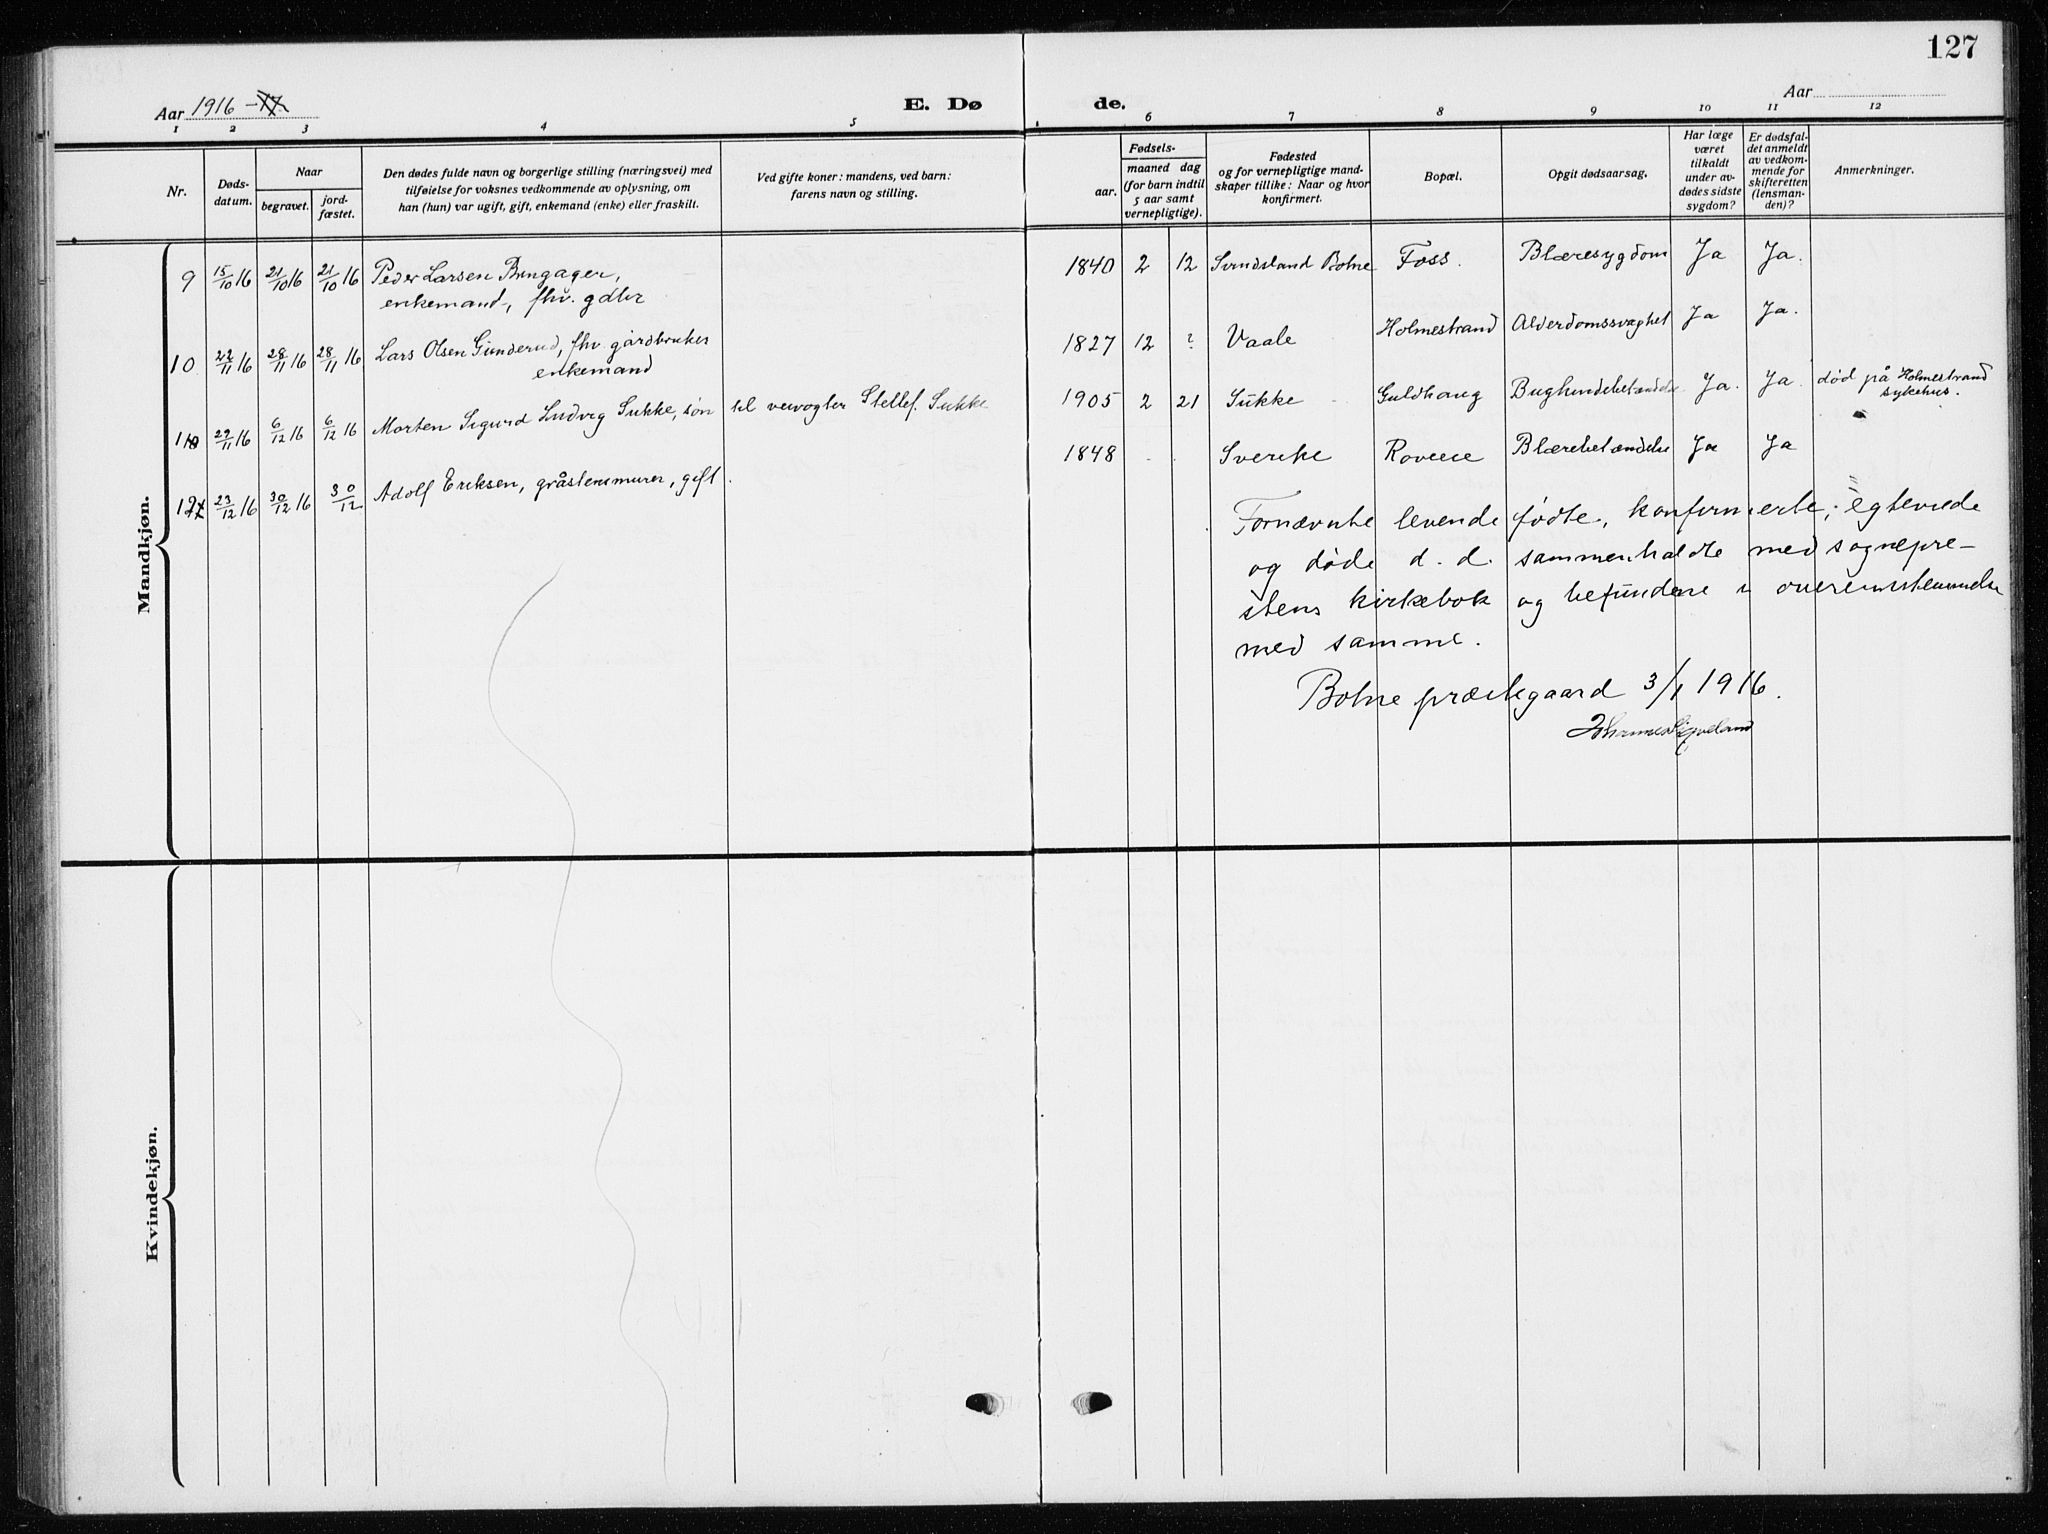 127
Aar 1916 -17.
E. Dø de.
Aar
1 2 3 4 5 6 7 8 9 10 11 12
Nr.
Døds-
datum.
Naar
begravet.
jord-
fæstet.
Den dødes fulde navn og borgerlige stilling (næringsvei) med
tilføielse for voksnes vedkommende av oplysning, om
han (hun) var ugift, gift, enkemand (enke) eller fraskilt.
Ved gifte koner: mandens, ved barn:
farens navn og stilling.
Fødsels-
aar.
maaned dag
(for barn indtil
5 aar samt
vernepligtige).
Fødested
og for vernepligtige mand-
skaper tillike: Naar og hvor
konfirmert.
Bopæl.
Opgit dødsaarsag.
Har læge
været
tilkaldt
under av-
dødes sidste
sygdom?
Er dødsfal-
det anmeldt
av vedkom-
mende for
skifteretten
(lensman-
den)?
Anmerkninger.
Mandkjøn.
9 15/10 16 21/10 16 21/10 16 Peder Larsen Bringager, 1840 2 12 Svindsland Botne Foss. Blæresygdom Ja Ja.
enkemand, fhv. gdbr
10 22/11 16 28/11 16 28/11 16 Lars Olsen Gunderud, fhv. gårdbruker 1827 12 ? Vaale Holmestrand Alderdomssvaghet Ja Ja.
enkemand
11 29/11 16 6/12 16 6/12 16 Morten Sigurd Ludvig Sukke, søn til veivogter Stellef. Sukke 1905 2 21 Sukke Guldhaug Bughindebetændelse Ja. Ja. død på Holmestrand
sykehus.
12 23/12 16 30/12 16 30/12 Adolf Eriksen, gråstensmurer, gift. 1848 Sverike Roveeie Blærebetændelse Ja Ja
Fornævnte levende fødte, konfirmerte, egteviede
og døde d. d. sammenholdte med sognepre-
stens kirkebok og befundene i overensstemmelse
med samme.
Botne prestegaard 3/1 1916.
Kvindekjøn.